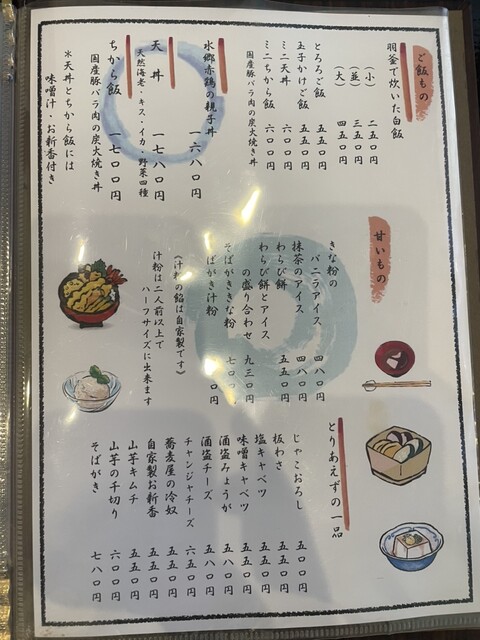 ご飯もの
羽釜で炊いた白飯
（小）二五〇円
（並）三五〇円
（大）四五〇円
とろろご飯 五五〇円
玉子かけご飯 五五〇円
ミニ天丼 六〇〇円
ミニちから飯 六〇〇円
国産豚バラ肉の炭火焼き丼
水郷赤鶏の親子丼 一六八〇円
天丼 一七八〇円
天然海老・キス・イカ・野菜四種
ちから飯 一七〇〇円
国産豚バラ肉の炭火焼き丼
＊天丼とちから飯には
味噌汁・お新香付き
甘いもの
きな粉の
バニラアイス 四八〇円
抹茶のアイス 四八〇円
わらび餅 五五〇円
わらび餅とアイス
の盛り合わせ 九三〇円
そばがききな粉 七〇〇円
ばがき汁粉 円
《汁粉の餡は自家製です》
汁粉は二人前以上で
ハーフサイズに出来ます
とりあえずの一品
じゃこおろし 五〇〇円
板わさ 五五〇円
塩キャベツ 五五〇円
味噌キャベツ 五五〇円
酒盗みょうが 五八〇円
酒盗チーズ 五八〇円
チャンジャチーズ 六五〇円
蕎麦屋の冷奴 五五〇円
自家製お新香 五五〇円
山芋キムチ 五五〇円
山芋の千切り 六〇〇円
そばがき 七八〇円